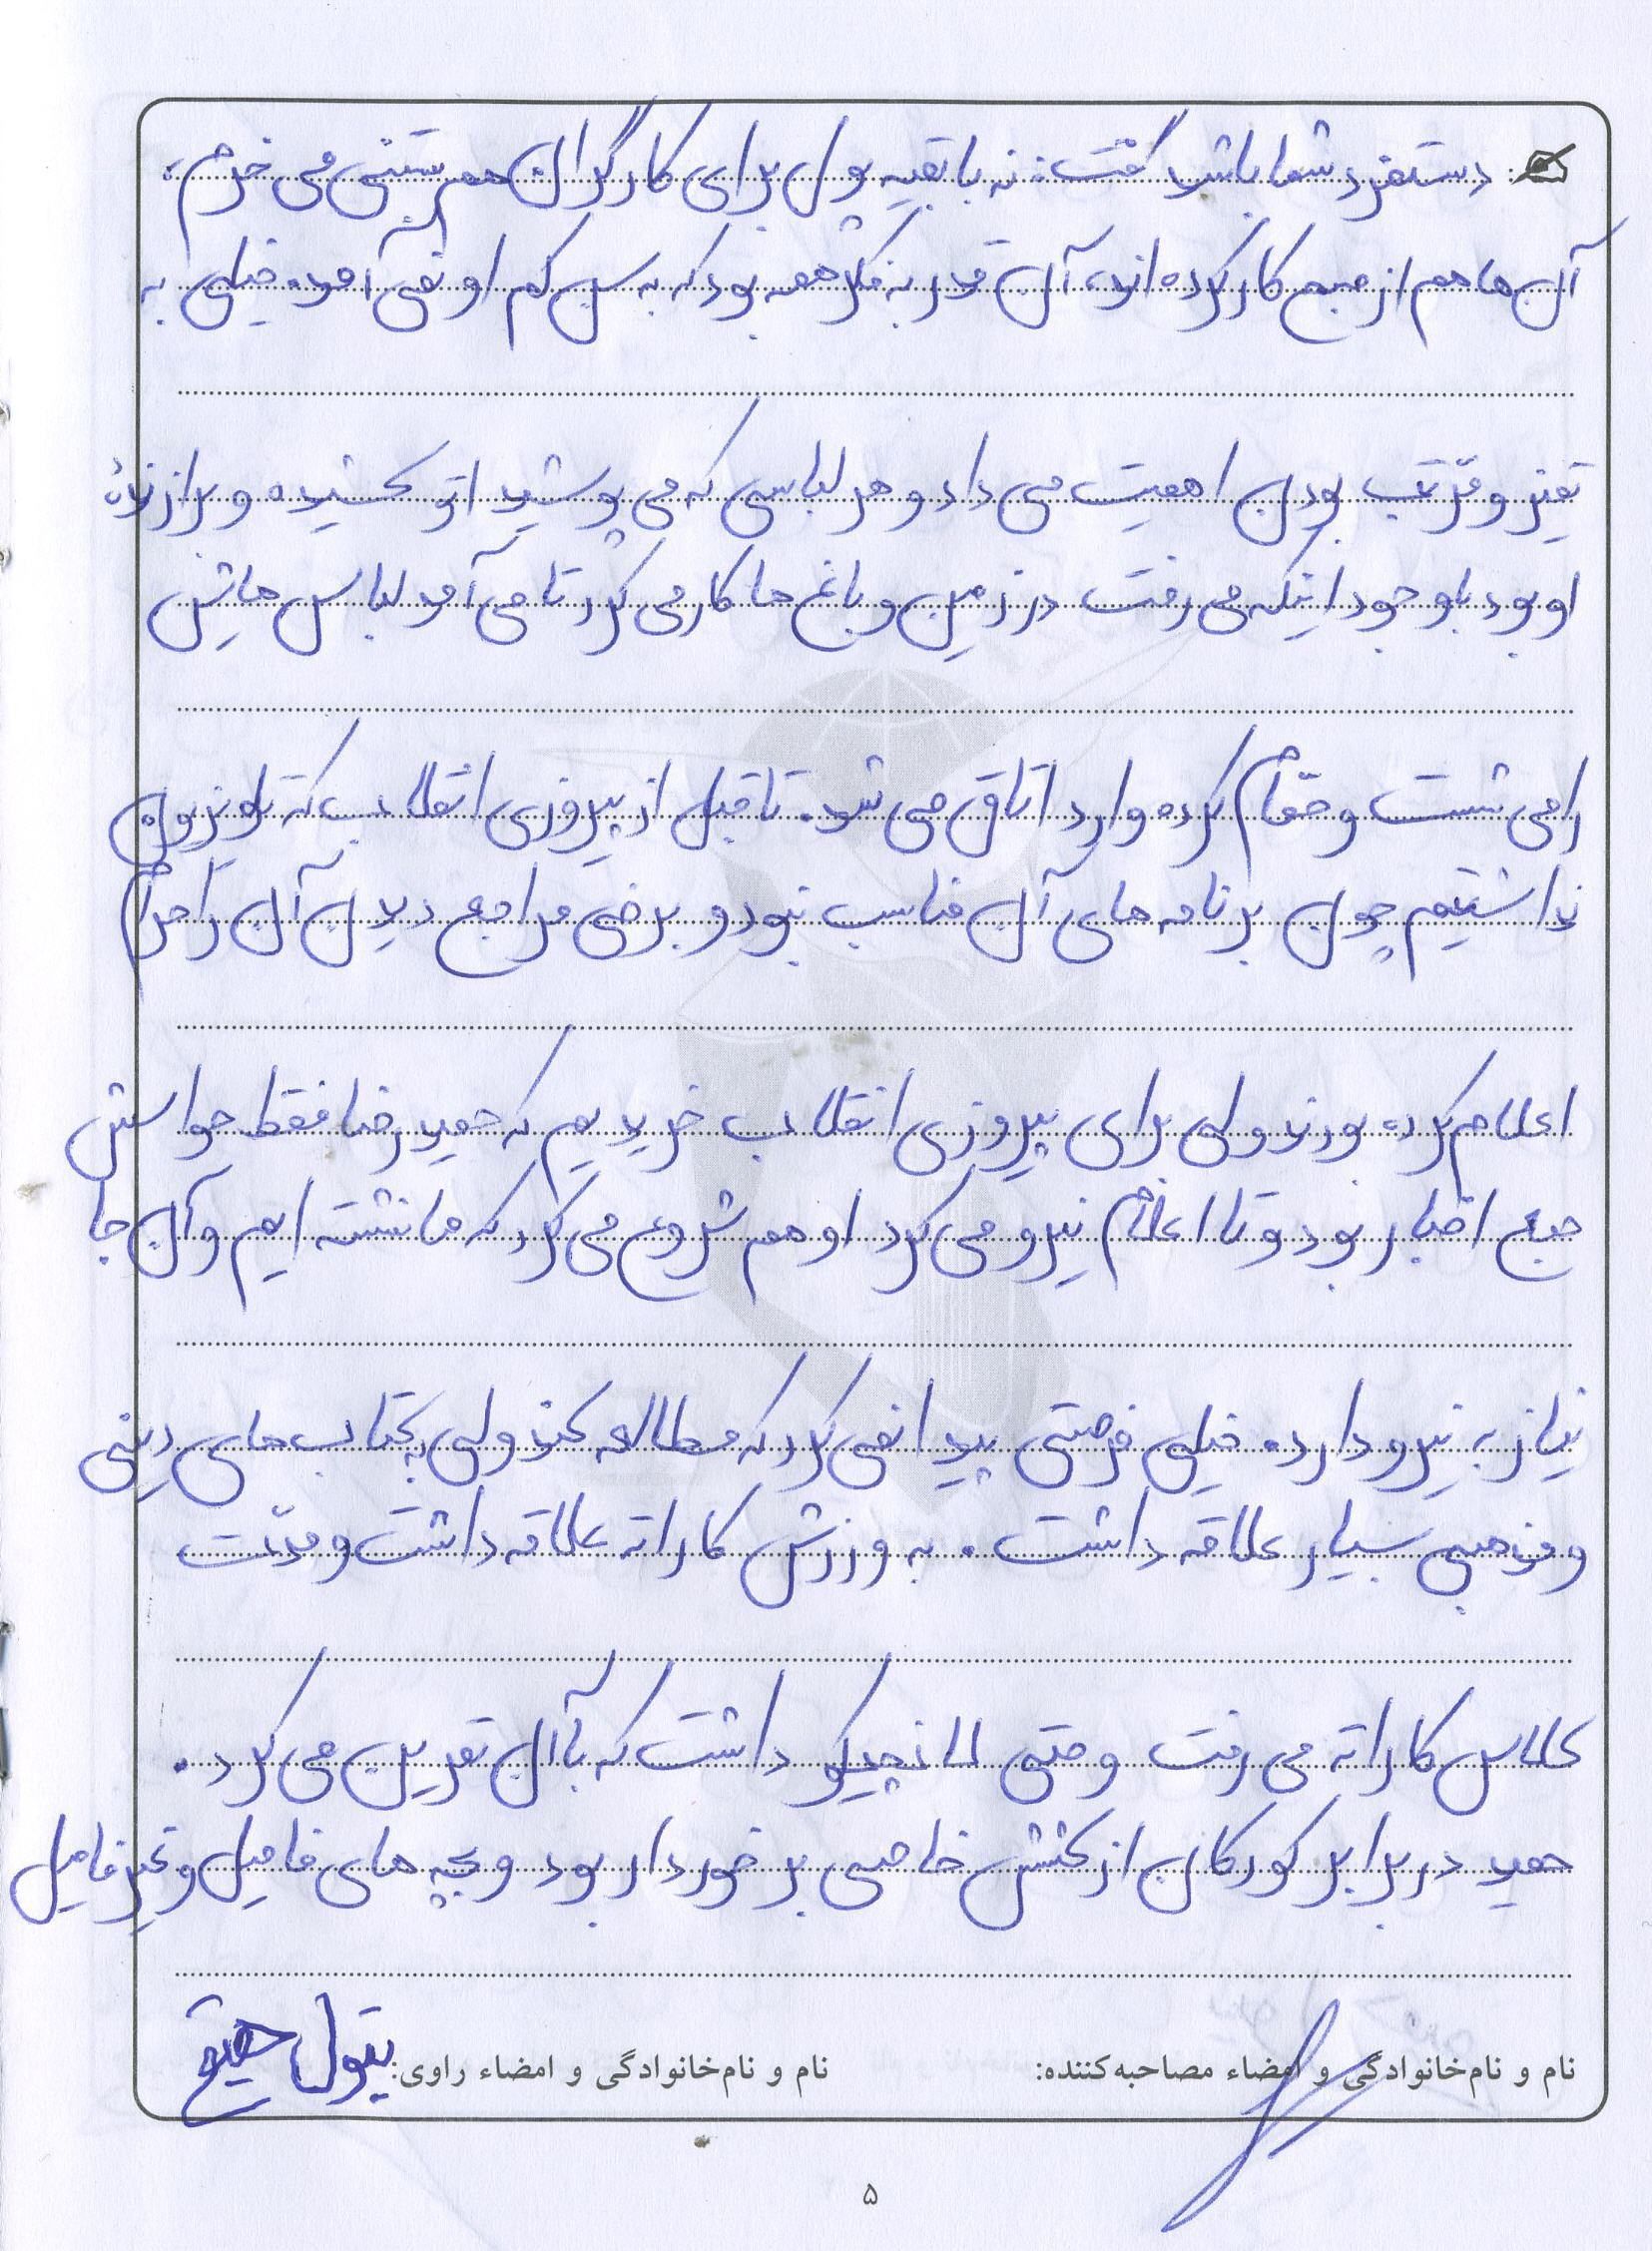 دستمزد شما باشد گفت: نه با بقیه پول برای کارگران هم بستنی می خرم،
آن ها هم از صبح کار کرده اند، آن قدر به فکر همه بود که به سن کم او نمی آمد. خیلی به
تمیز و مرتب بودن اهمیت می داد و هر لباسی که می پوشید اتو کشیده و برازندهٔ
او بود با وجود اینکه می رفت در زمین و باغ ها کار می کرد تا می آمد لباس هایش
را می شست و حمام کرده وارد اتاق می شد. تا قبل از پیروزی انقلاب که تلویزیون
نداشتیم چون برنامه های آن مناسب نبود و برخی مراجع دیدن آن را حرام
اعلام کرده بودند ولی برای پیروزی انقلاب خریدیم که حمید رضا فقط حواسش
جمع اخبار بود و تا اعلام نیرو می کرد او هم شروع می کرد که ما نشسته ایم و آن جا
نیاز به نیرو دارد. خیلی فرصتی پیدا نمی کرد که مطالعه کند ولی به کتاب های دینی
و مذهبی بسیار علاقه داشت. به ورزش کاراته علاقه داشت و مدّت
کلاس کاراته می رفت و حتی نانچیکو داشت که با آن تمرین می کرد.
حمید در برابر کودکان از کشش خاصی برخوردار بود و بچه های فامیل و غیر فامیل
نام و نام‌خانوادگی و امضاء مصاحبه‌کننده: نام و نام‌خانوادگی و امضاء راوی: بتول
۵